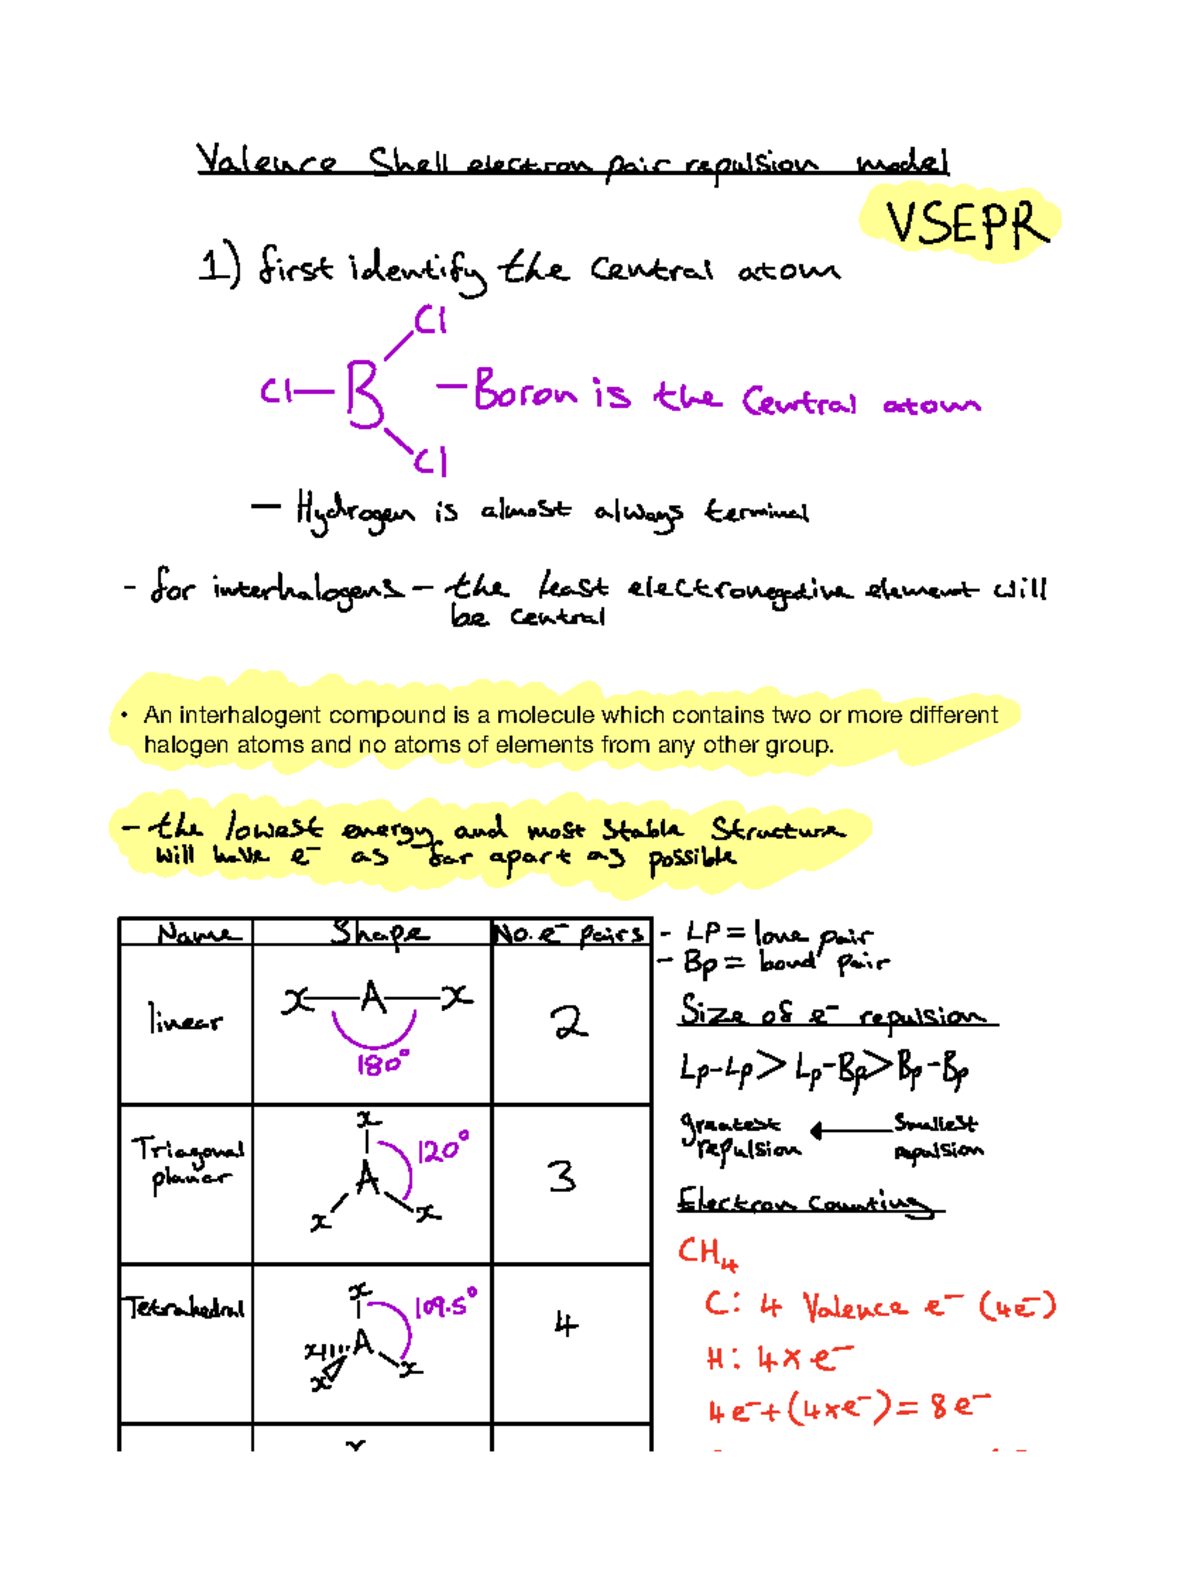 Valence Shell electron pair repulsion model
VSEPR
1) first identify the central atom
Cl
Cl—B
— Boron is the central atom
Cl
— Hydrogen is almost always terminal
- for interhalogens – the least electronegative element will
be central
• An interhalogent compound is a molecule which contains two or more different
halogen atoms and no atoms of elements from any other group.
- the lowest energy and most stable structure
will have e⁻ as far apart as possible
Name Shape No. e⁻ pairs
linear
x—A—x
180°
2
Triagonal
planar
x
120°
A
x x
3
Tetrahedral
x
109.5°
x A
x x
4
x
- LP = lone pair
- Bp = bond pair
Size of e⁻ repulsion
Lp-Lp > Lp-Bp > Bp-Bp
greatest ← smallest
repulsion repulsion
Electron counting
CH₄
C: 4 valence e⁻ (4e⁻)
H: 4 x e⁻
4e⁻ + (4xe⁻) = 8e⁻